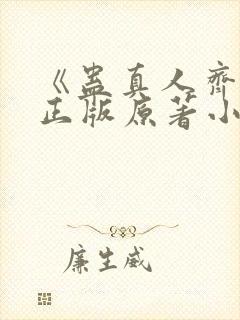 《蛊真人齐
正版原著小
廉生威